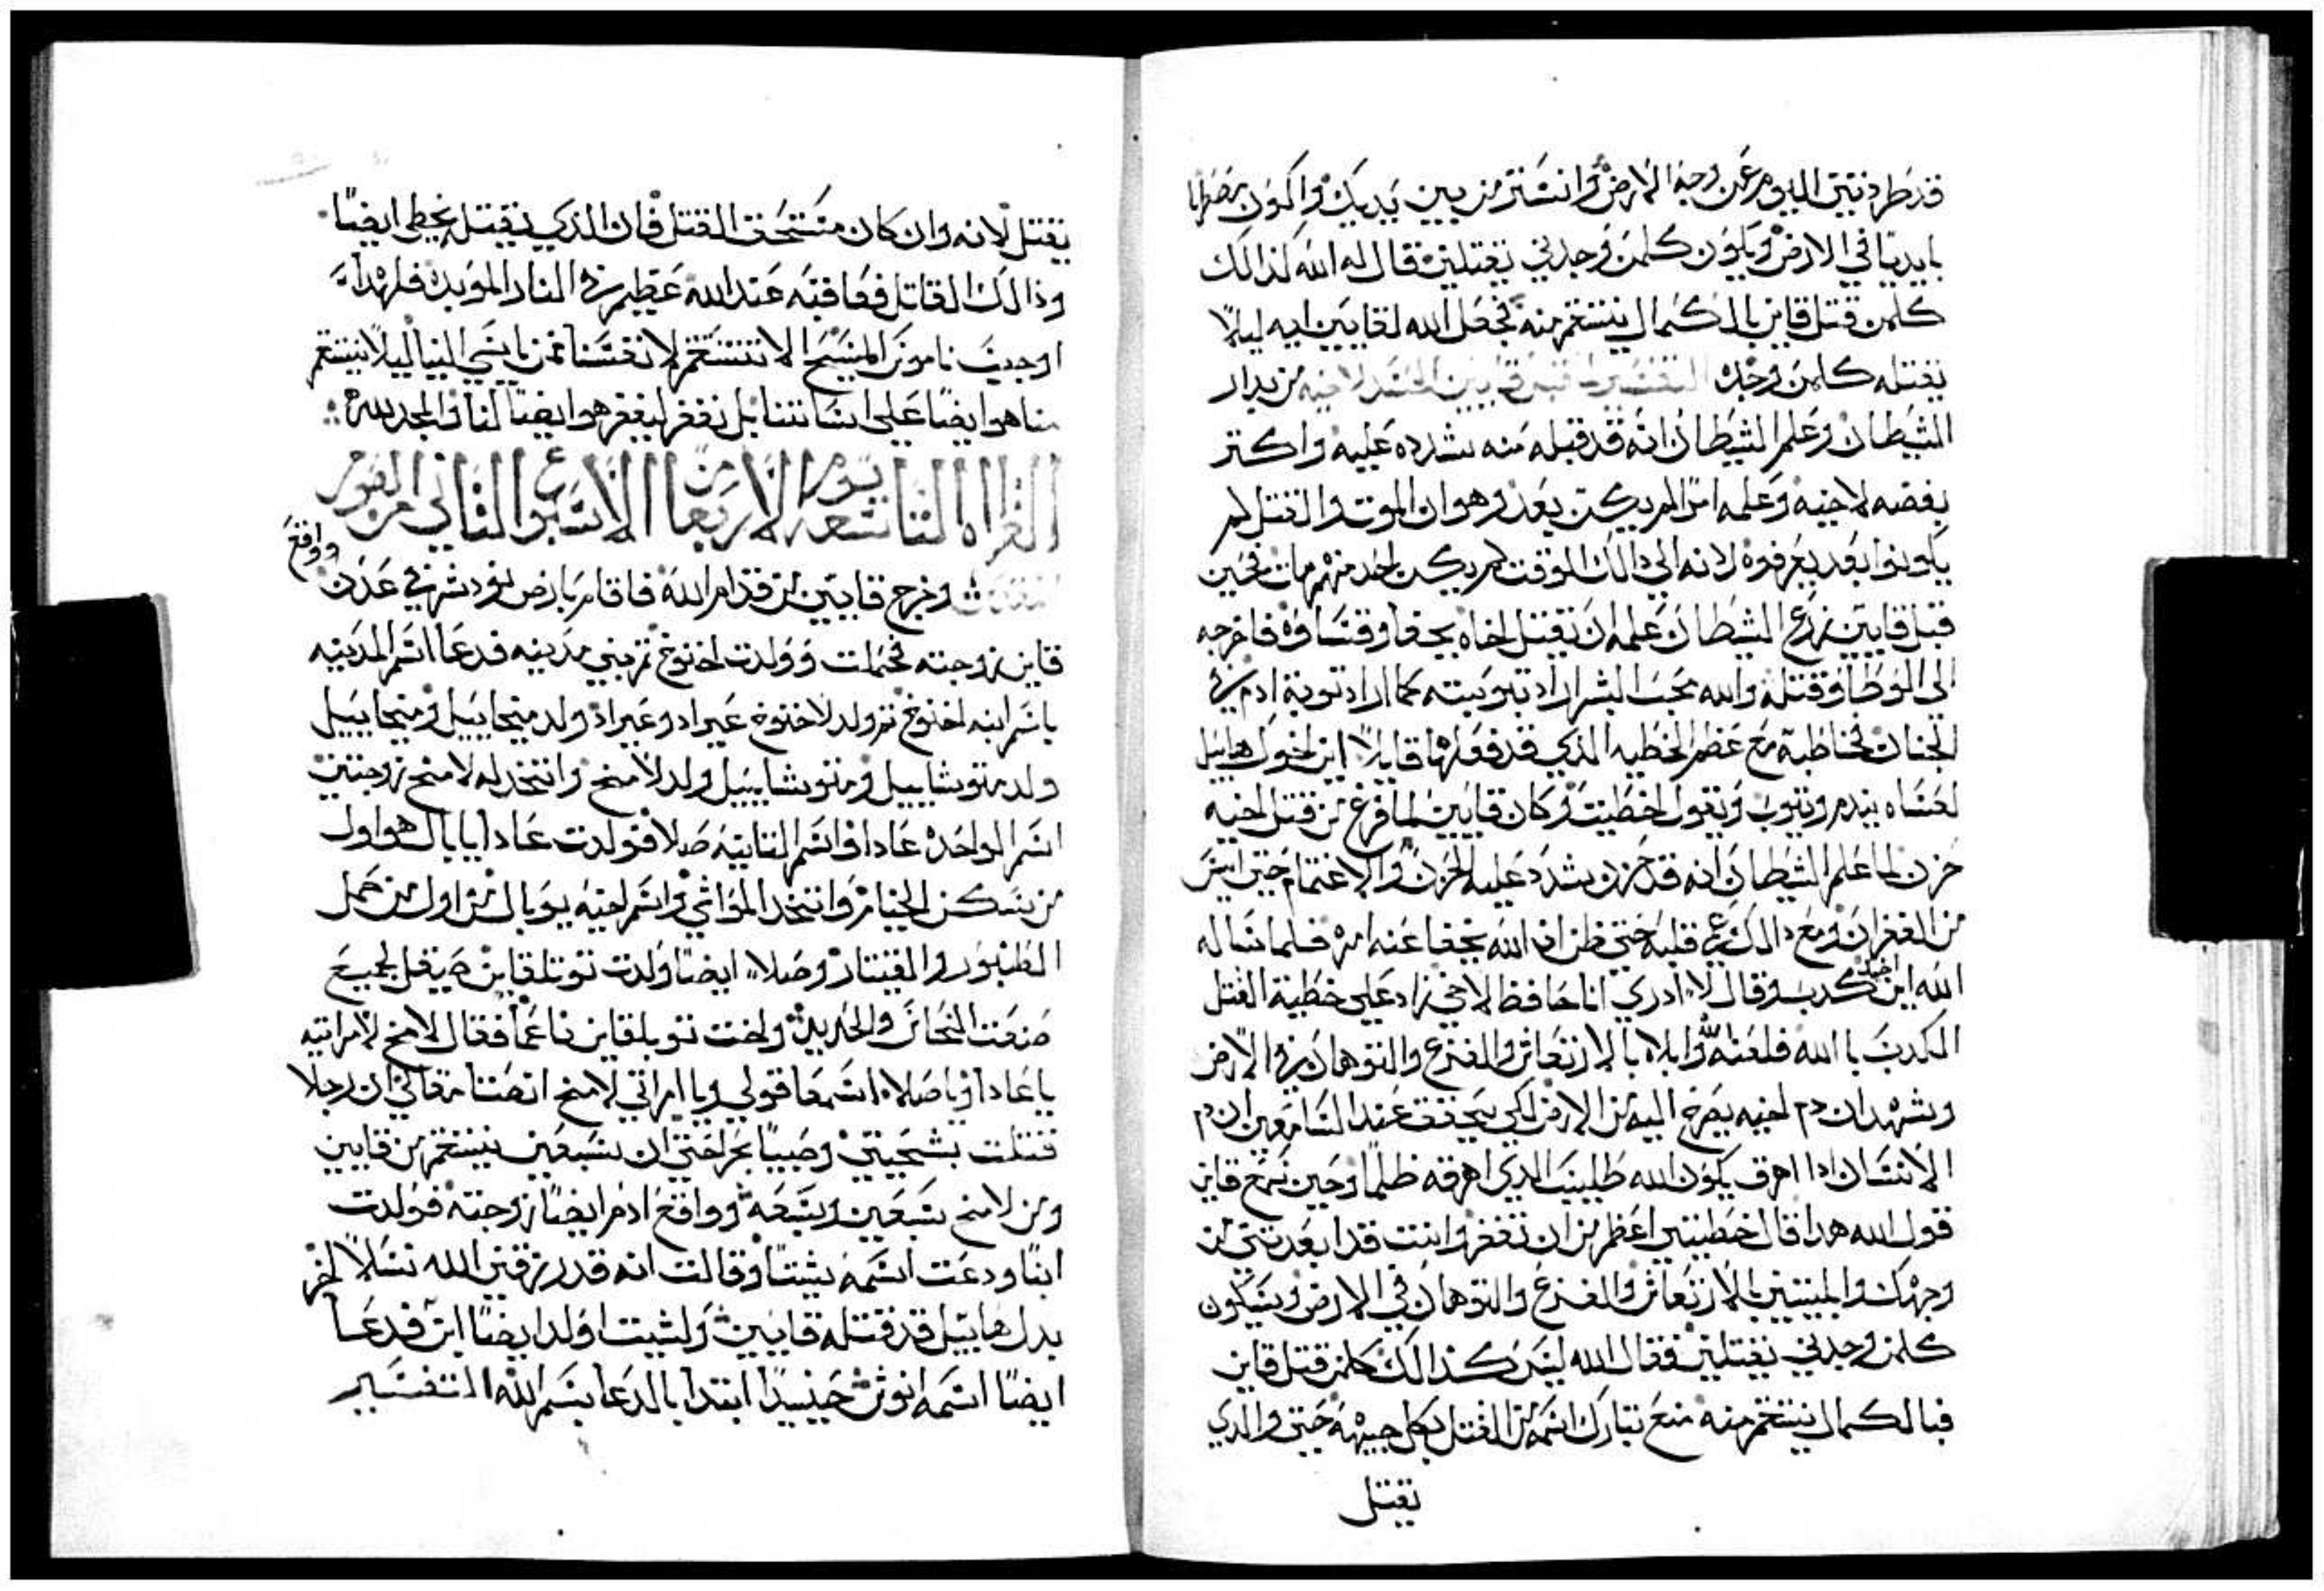 قد طردتني اليوم عن وجه الارض وانستر من بين يديك واكون مضطربا
بايديا في الارض ويكون كلمن وجدني يقتلني فقال له الله كذالك
كلمن قتل قاين بالكمال ينتقم منه فجعل الله لقايين ايه ليلا
يقتله كلمن وجده التفسير قايين الحسد لاخيه من يدار
الشيطان وعلم الشيطان انه قد قبله منه شدده عليه واكثر
بغضه لاخيه وعلمه امرا لم يكن بعد وهو ان الموت والقتل لم
يكونوا بعد يعرفوه لانه الي ذالك الوقت لم يكن احد منهم مات فحين
قبل قايين زرع الشيطان علمه ان يقتل اخاه بجفا وقساوه فاخرجه
الى الوطا وقتله والله محب البشر اراد تبوبيته كما اراد توبة ادم في
الجنان فخاطبه مع عظم الخطيه الذي قد فعلها قايلا اين اخوك هابيل
لعساه يندم ويتوب ويقول اخطيت وكان قايين لما فرغ من قتل اخيه
حزن لما علم الشيطان انه قد حزن شدد عليه الحزن والاغتمام حتي ايس
من الغفران ومع ذالك عمي قلبه حتي ظن ان الله يخفا عنه امره فلما ساله
الله اين اخيك كدب وقال لا ادري انا حافظ لاخي زاد علي خطية القتل
الكدب بالله فلعنه الله وابلاه بالارتعاش والفزع والتوهان في الارض
وشهد ان دم اخيه يصرخ اليه من الارض لكي يحقق عند السامعين ان دم
الانسان اذا اهرق يكون الله طليب الذي اهرقه ظلما وحين سمع قاين
قول الله هدا قال خطيتي اعظم من ان تغفر وانت قد ابعدتني من
وجهك والبستني بالارتعاش والفزع والتوهان في الارض وسيكون
كلمن وجدني يقتلني فقال الله ليس كذالك كلمن قتل قاين
فبالكمال ينتقم منه منع تبارك اسمه من القتل بكل جهه حتي والذي
يقتل
يقتل لانه وان كان مستحق القتل فان الذي يقتله يخطي ايضا
وذالك القاتل فعاقبه عند الله عظيم في النار الموبده فلهدا
اوجب ناموس المسيح الا ننتقم لانفسنا ممن ياسي الينا ليلا ينتقم
منا هو ايضا علي اساتنا بل نغفر ليغفر هو ايضا لنا والمجد لله
القراه التاسعه يوم الاربعا من الاسبوع الثاني من الصوم
وخرج قايين من قدام الله فاقام بارض نود شرقي عدن وواقع
قاين زوجته فحملت وولدت اخنوخ ثم بني مدينه فدعا اسم المدينه
باسم ابنه اخنوخ ثم ولد لاخنوخ عيراد وعيراد ولد ميحاييل وميحاييل
ولد متوشاييل ومتوشاييل ولد لامخ واتخد له لامخ زوجتين
اسم الواحده عادا واسم الثانيه صلا فولدت عادا يابال هو اول
من سكن الخيام واتخد المواشي واسم اخيه يوبال من اول من عمل
الطنبور والقيتار وصلا ايضا ولدت توبلقاين صيقل لجميع
صنعت النحاس والحديد واخت توبلقاين ناعما فقال لامخ لامراتيه
يا عادا ويا صلا اسمعا قولي ويا امراتي لامخ انصتا مقالي ان رجلا
قتلت بشجتي وصبيا بجراحتي ان بسبعين ينتقم من قايين
ومن لامخ بسبعين وسبعه وواقع ادم ايضا زوجته فولدت
ابنا ودعت اسمه شيتا وقالت انه قد رزقني الله نسلا اخر
بدل هابيل قد قتله قايين ولشيت اولد ايضا ابن فدعا
ايضا اسمه انوش حينيدا ابتدا بالدعا بسم الله التفسير